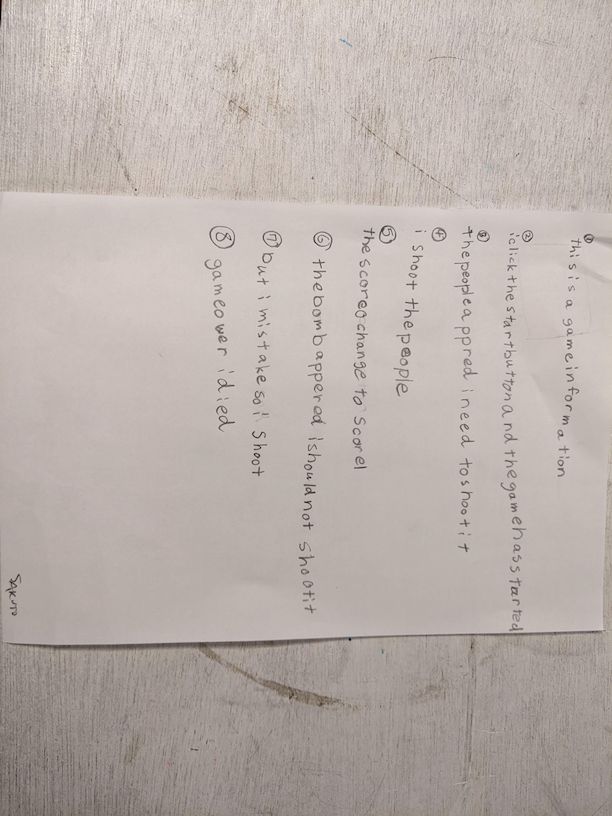 ①
this is a game information
②
i click the start button and the game has started
③
the people appred i need to shoot it
④
i shoot the people
⑤
the score0 change to score1
⑥ the bomb appered i should not shoot it
⑦ but i mistake so i shoot
⑧ game over i died
SAKUTO